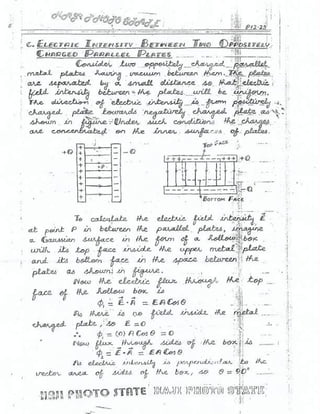 P12-23
C. ELECTRIC INTENSITY BETWEEN TWO OPPOSITELY
CHARGED PARALLEL PLATES
Consider two oppositely charged parallel
metal plates having vacuum between them. The plates
are separated by a small distance so that electric
field intensity between the plates will be uniform.
The direction of electric intensity is from positively
charged plate towards negatively charged plate as
shown in figure. Under such conditions the charges
are concentrated on the inner surfaces of plates.
TOP FACE
+Q -Q
+Q
-Q
BOTTOM FACE
To calculate the electric field intensity E
at point P in between the parallel plates, imagine
a Gaussian surface in the form of a hollow box
with its top face inside the upper metal plate
and its bottom face in the space between the
plates as shown in figure.
Now the electric flux through the top
face of the hollow box is
ϕ₁ = E⃗ · A⃗ = EA Cos θ
As there is no field inside the metal
charged plate, so E = 0
∴ ϕ₁ = (0) A Cos θ = 0
Now flux through sides of the box is
ϕ₂ = E⃗ · A⃗ = EA Cos θ
As electric intensity is perpendicular to the
vector area of sides of the box, so θ = 90°
HAJI PHOTO STATE HAJI PHOTO STATE